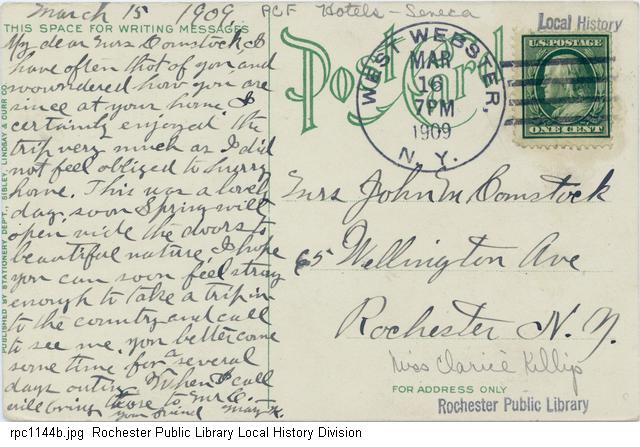 March 15 1909
PCF Hotels - Seneca
THIS SPACE FOR WRITING MESSAGES
My dear Mrs Comstock, I
have often that of you, and
wowondered how you are
since at your home. I
certainly enjoyed the
trip very much as I did
not feel obliged to hurry
home. This was a lovely
day. soon Spring will
open wide the doors to
beautiful nature, I hope
you can soon feel strong
enough to take a trip in
to the country and call
to see me. you better come
some time for a several
days outing. When I call
will bring those to Mrs C.
your friend Mary
PUBLISHED BY STATIONERY DEPT., SIBLEY, LINDSAY & CURR CO.
Post Card
WEST WEBSTER,
MAR
16
7PM
1909
N. Y.
Local History
U.S. POSTAGE
ONE CENT
Mrs John M Comstock
65 Wellington Ave
Rochester N. Y.
Miss Clarice Killip
FOR ADDRESS ONLY
Rochester Public Library
rpc1144b.jpg Rochester Public Library Local History Division